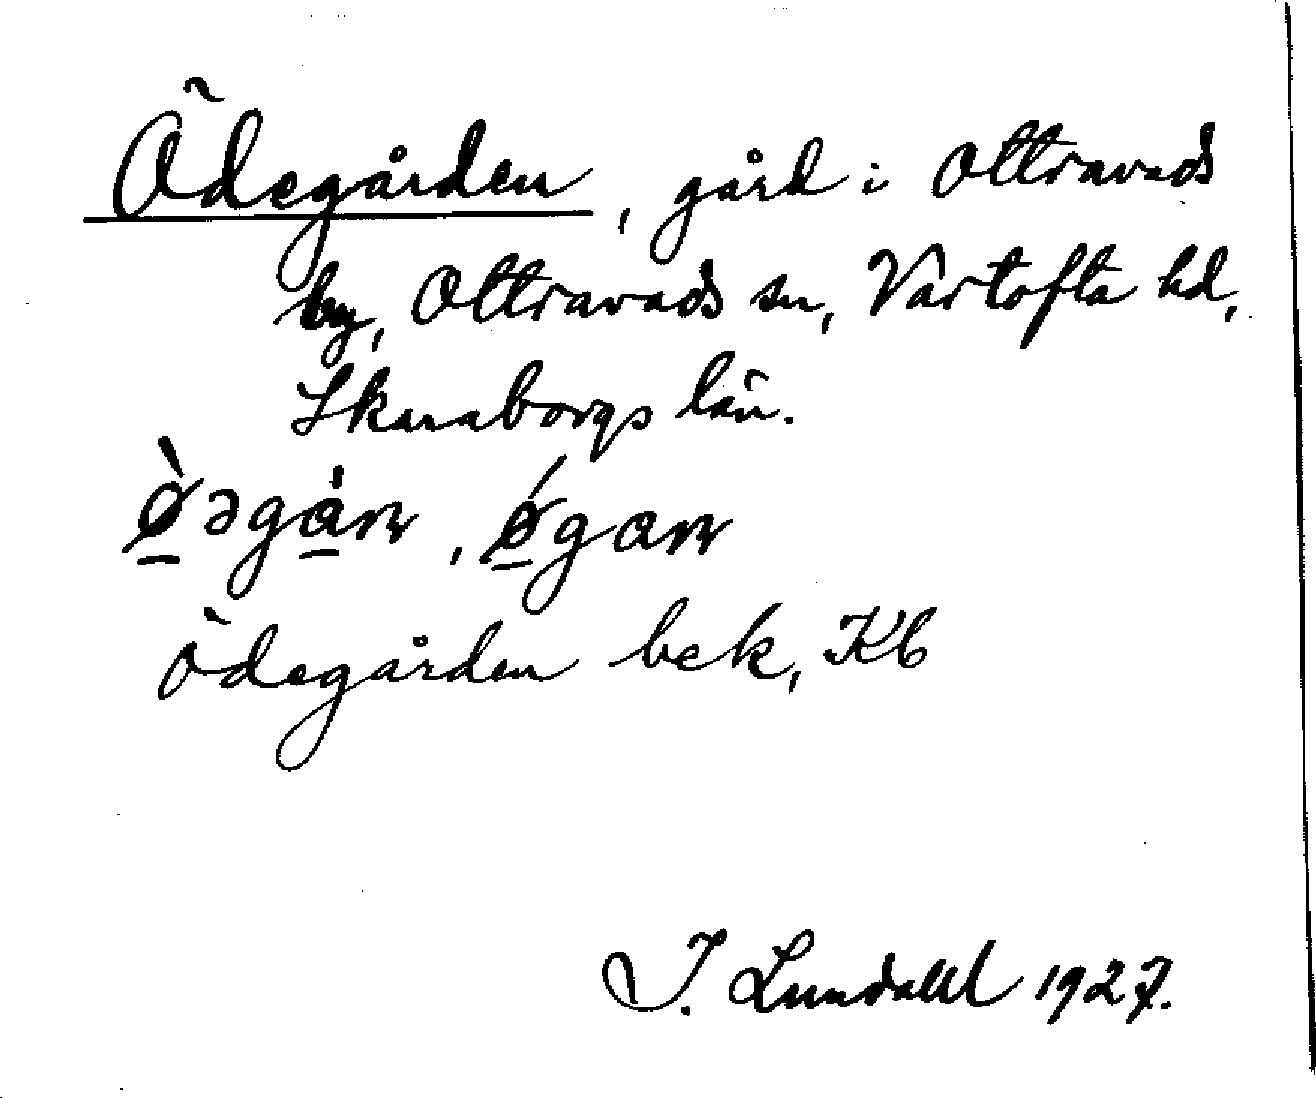 Ödegården, gård i Ottravads
by, Ottravads sn, Vartofta hd,
Skaraborgs län.
ø̠̀əgà̠rn, ǿ̠garn
Ödegården bek, Kb
I. Lundahl 1927.